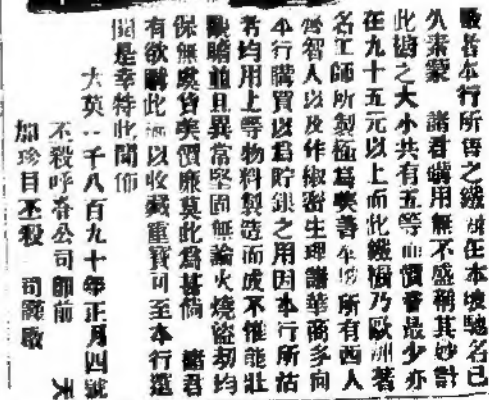 啟者本行所專之鐵櫥在本坡馳名已
久素蒙　諸君購用無不盛稱其妙計
此櫥之大小共有五等而價會最少亦
在九十五元以上而此鐵櫥乃歐洲著
名工師所製極爲美善本坡所有西人
營智人以及作椒密生理諸華商多向
本行購買以爲貯銀之用因本行所沽
者均用上等物料製造而成不惟能壯
觀瞻並且異常堅固無論火燒盜刼均
保無虞貨美價廉莫此爲甚倘　諸君
有欲購此櫥以收藏重寶可至本行選
閱是幸特此聞佈
大英一千八百九十年正月四號
不殺呼吞公司郎前　天
加珍目丕殺　司　啟